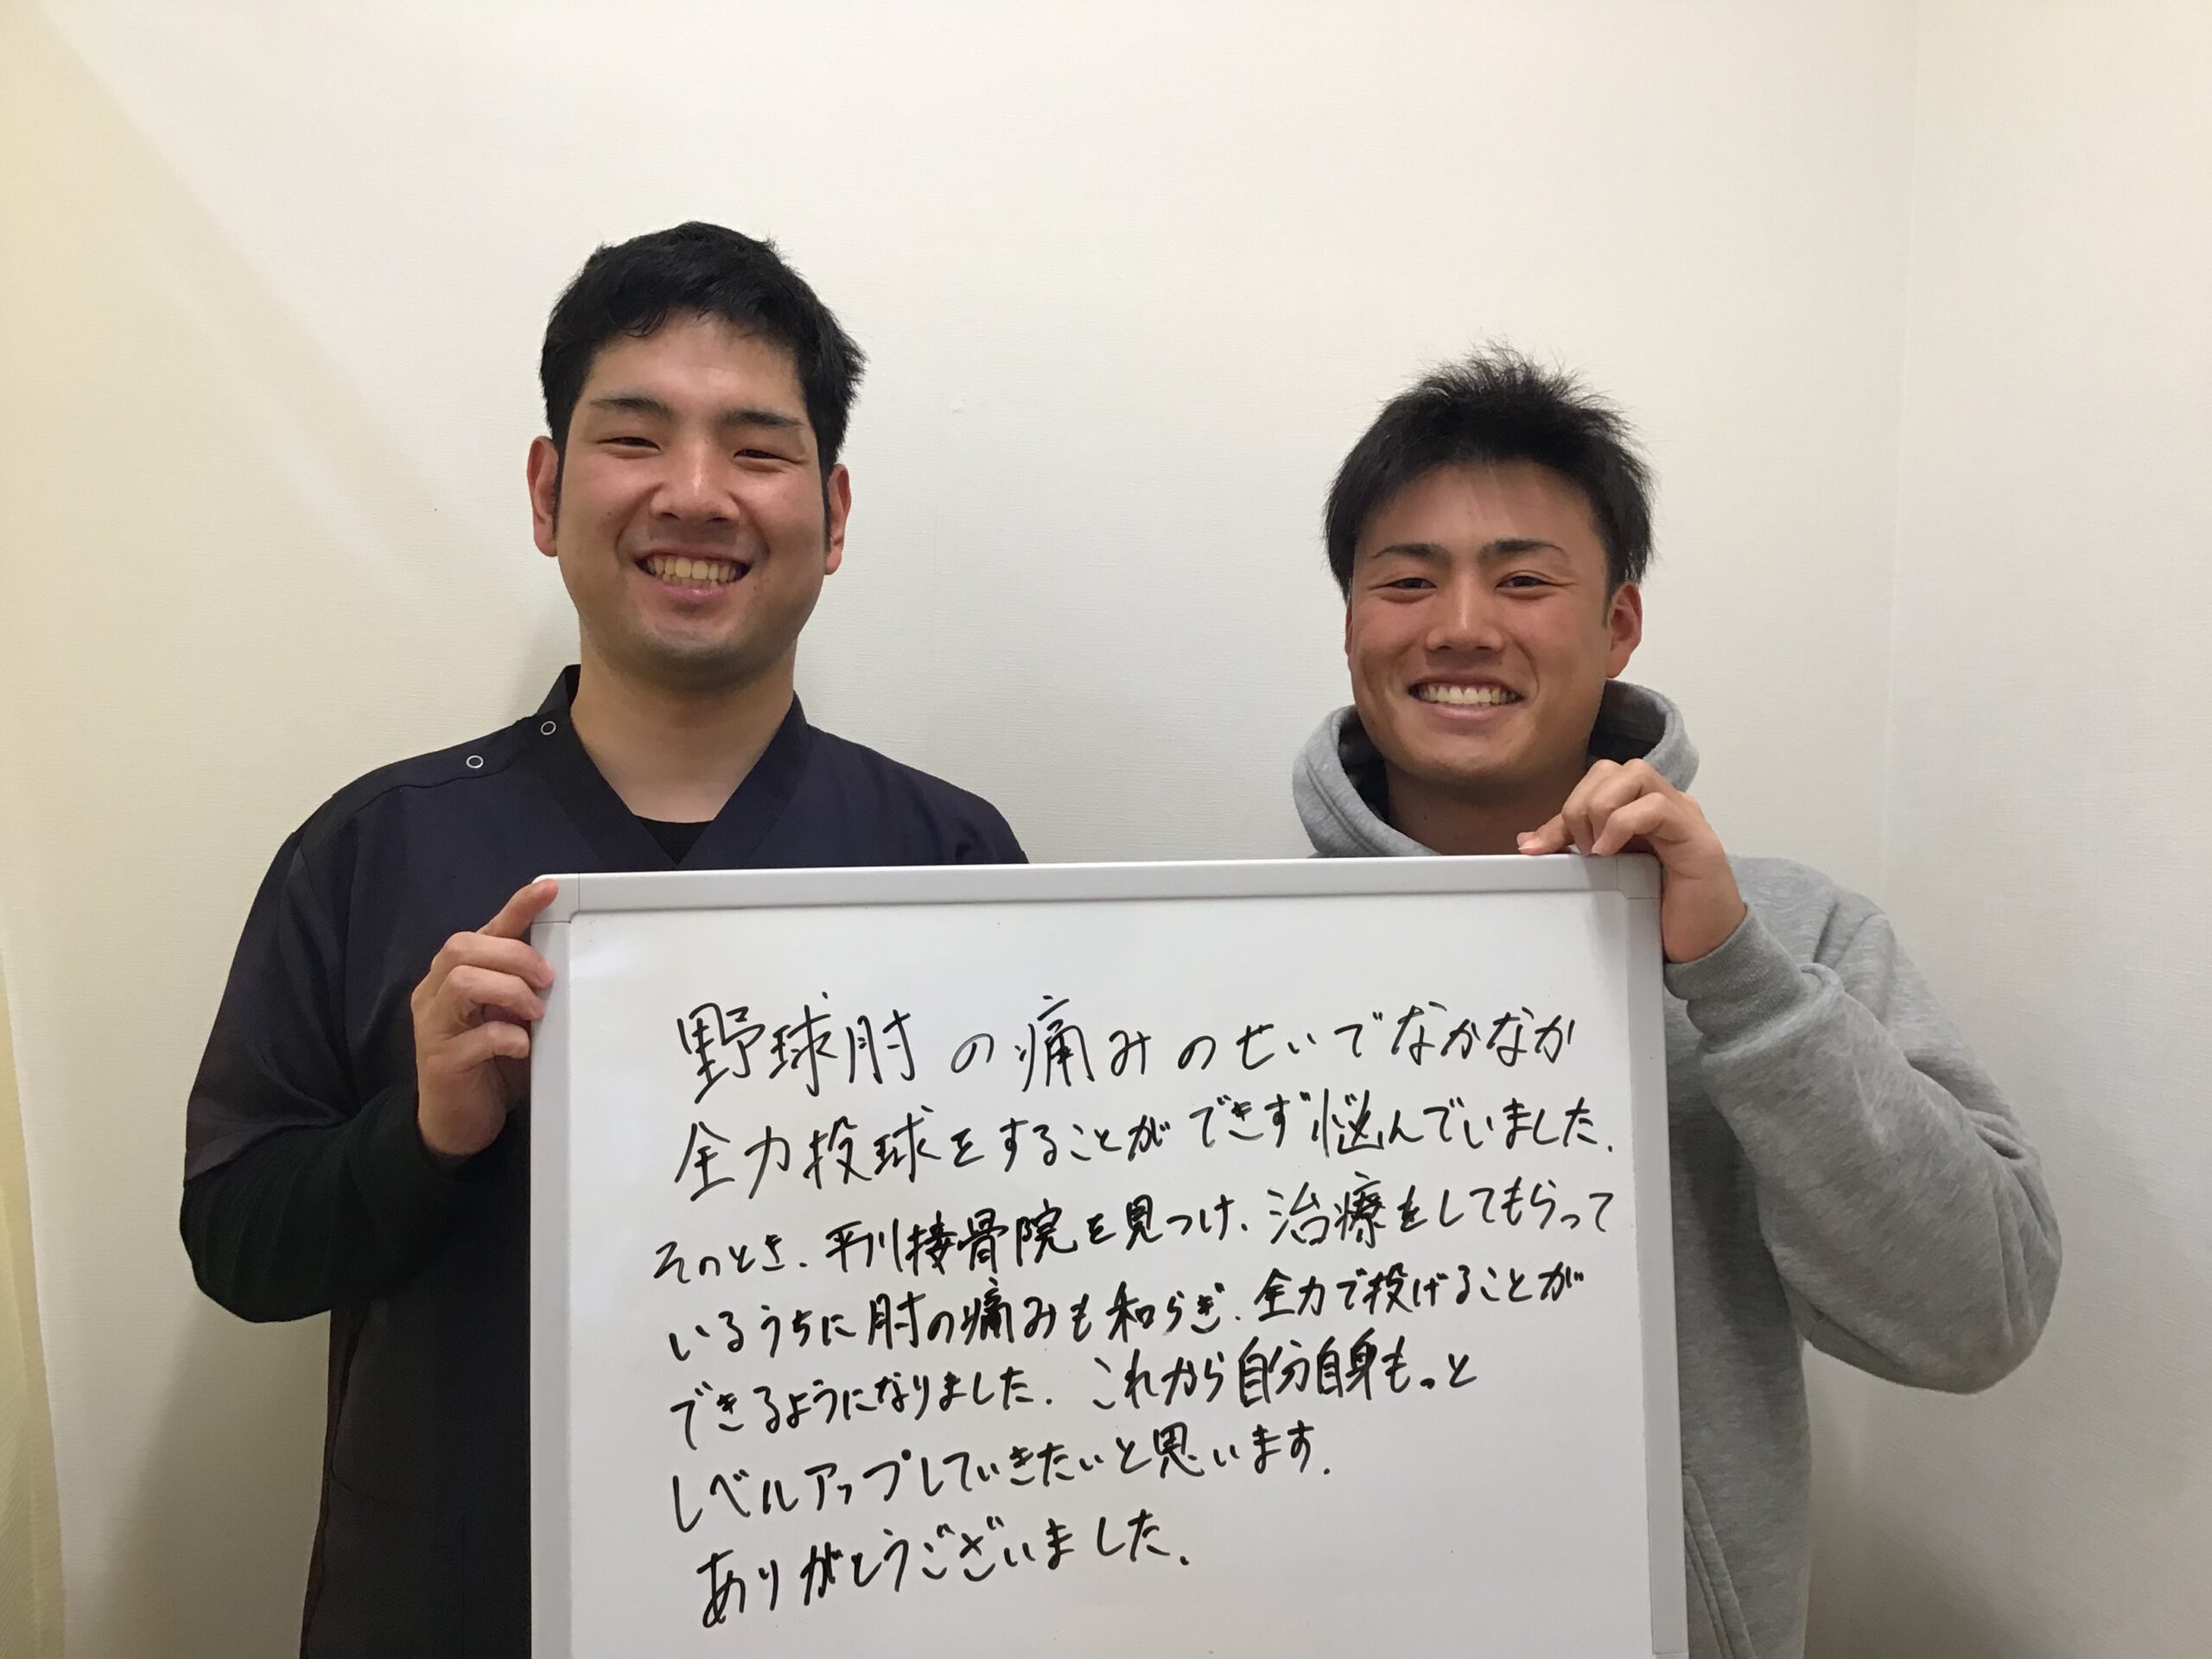 野球肘の痛みのせいでなかなか
全力投球をすることができず悩んでいました.
そのとき、平川接骨院を見つけ、治療をしてもらって
いるうちに肘の痛みも和らぎ、全力で投げることが
できるようになりました. これから自分自身もっと
レベルアップしていきたいと思います.
ありがとうございました.